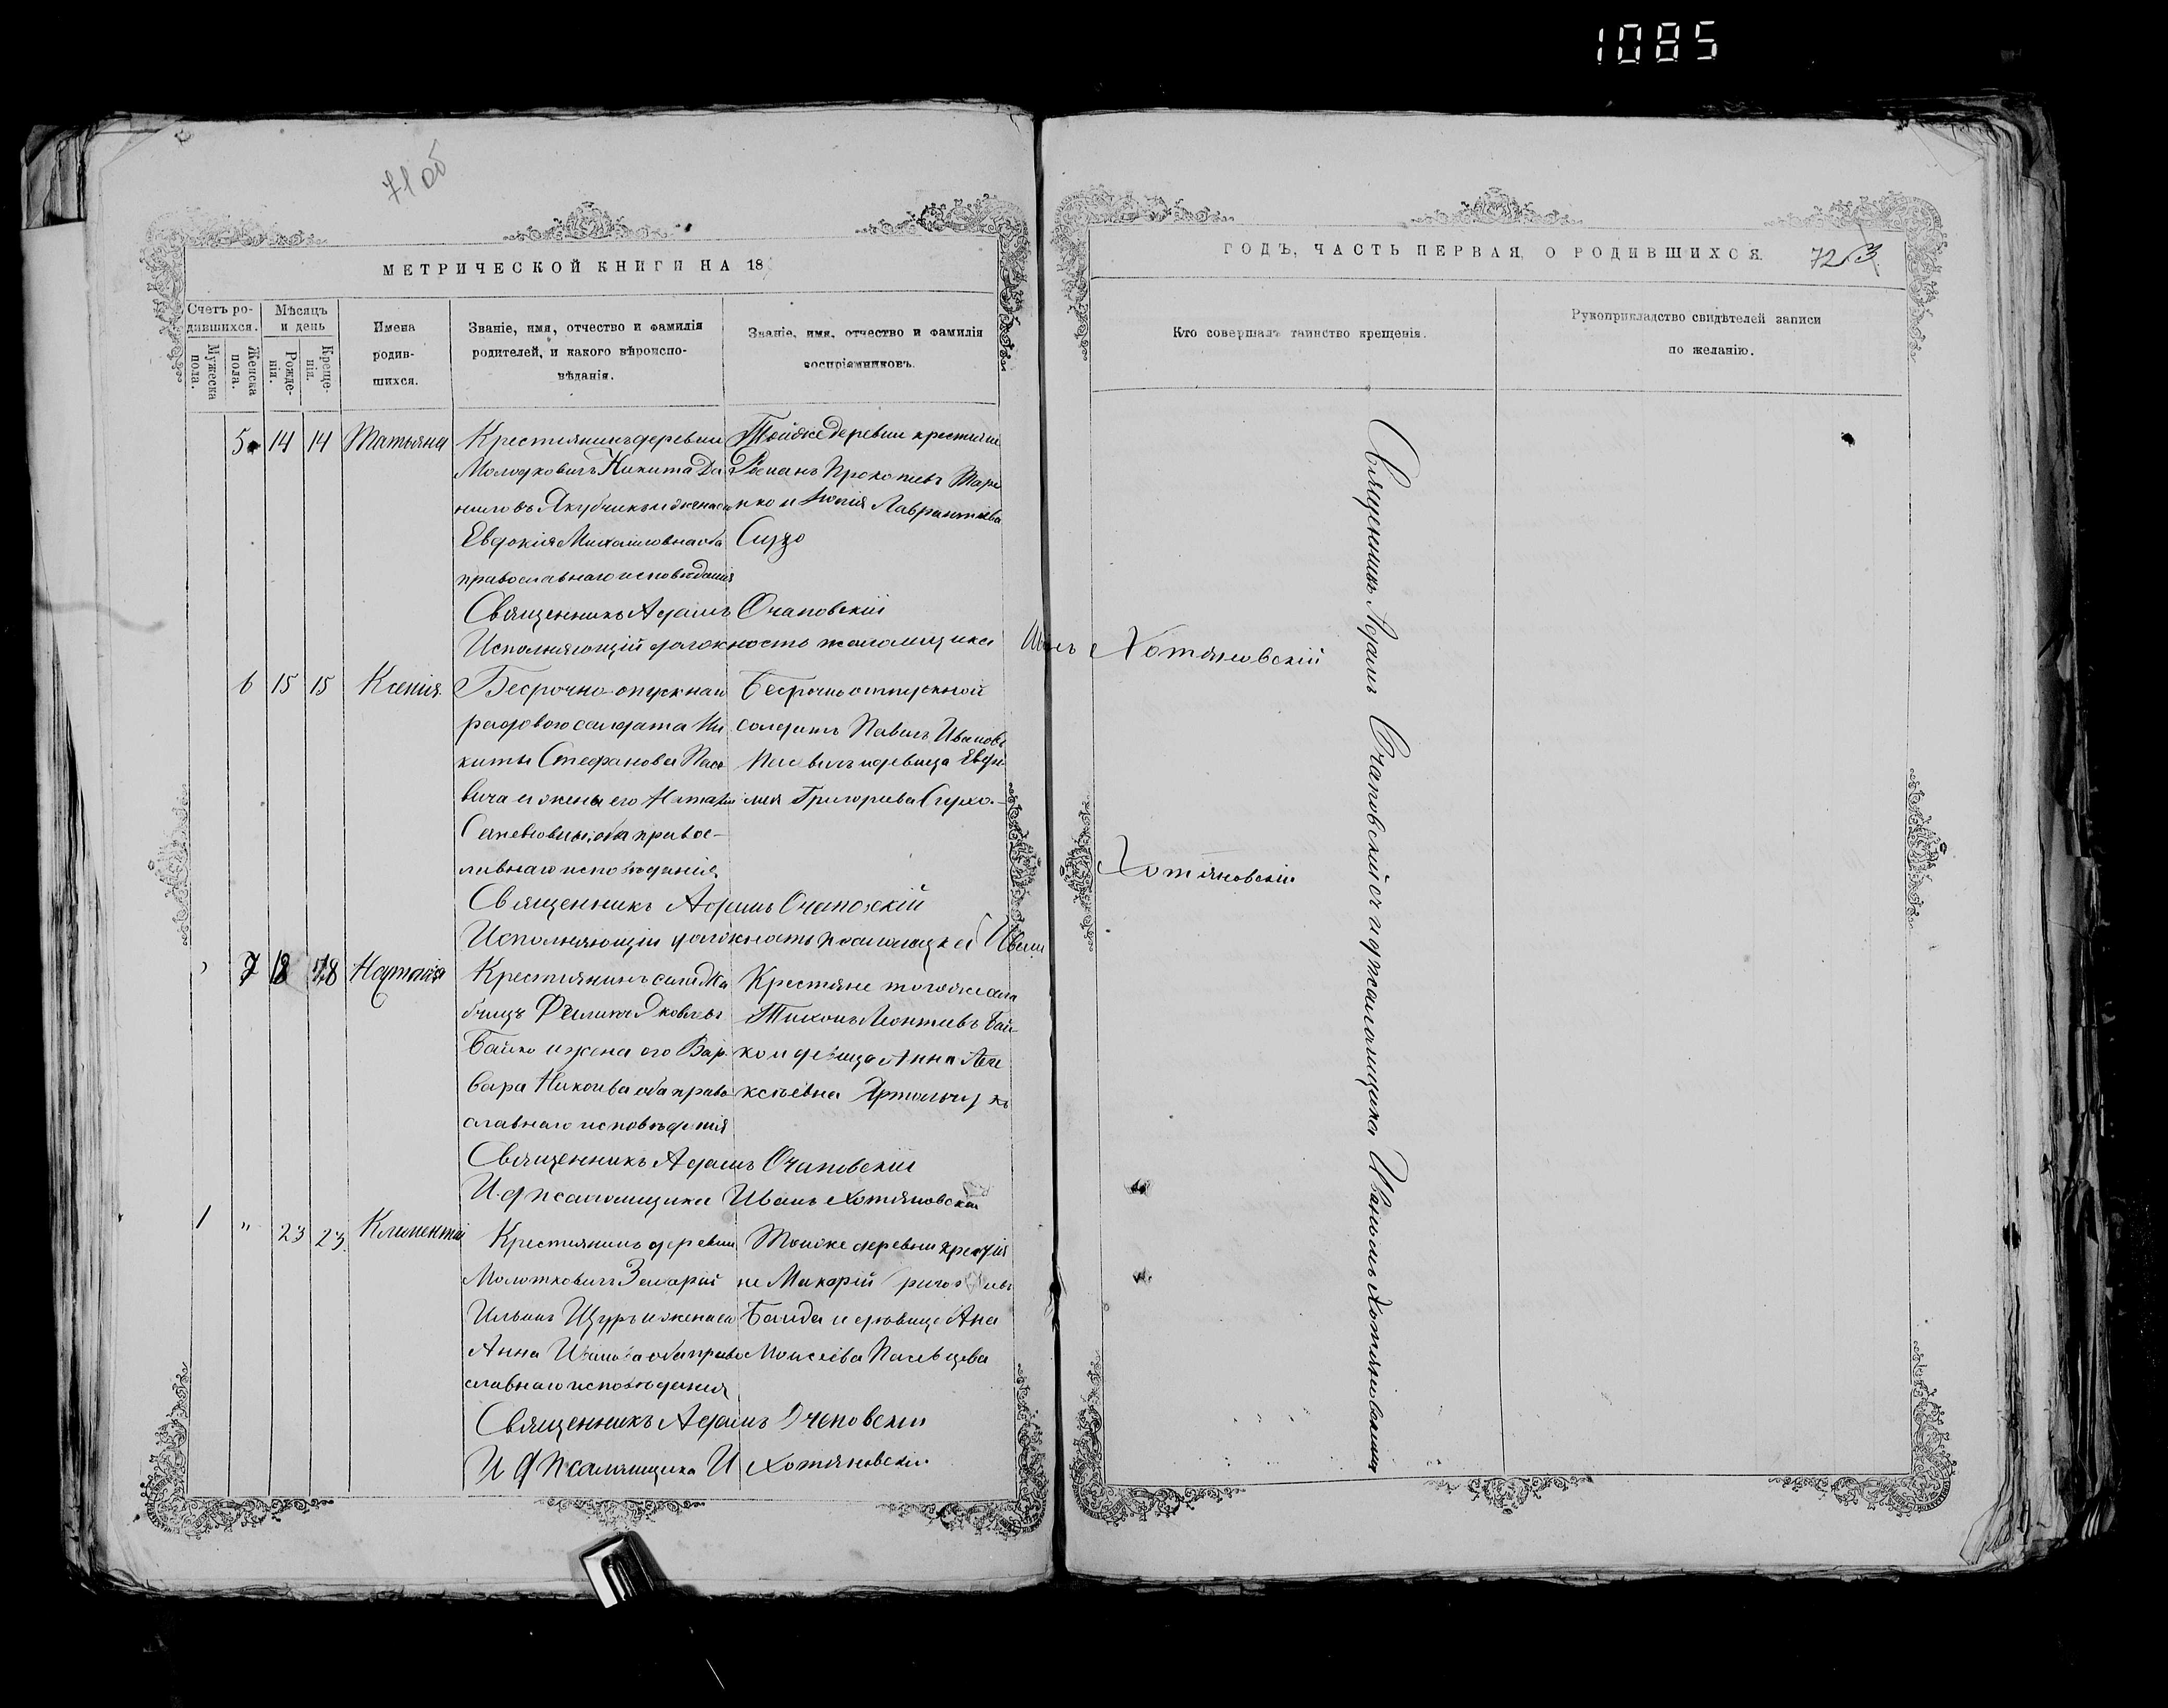 1085
71 об
МЕТРИЧЕСКОЙ КНИГИ НА 18
Счетъ ро-
дившихся.
Мужеска
пола.
Женска
пола.
Мѣсяцъ
и день
Рожде-
нія.
Креще-
нія.
Имена
родив-
шихся.
Званіе, имя, отчество и фамилія
родителей, и какого вѣроиспо-
вѣданія.
Званіе, имя, отчество и фамилія
воспріемниковъ.
5 14 14 Татьяна
Крестиянинъ деревни
Молодковичъ Никита Да
ниловъ Якубчикъ и жена его
Евдокія Михайловна оба
православнаго исповѣданія
Тойже деревни крестияне
Романъ Прокопиевъ
Лаврантиева
Священникъ Адамъ Очаповскій
Исполняющій должность псаломщика Иванъ Хотяновскій
6 15 15 Ксенія
Безсрочно-опускнаи
рядовою солдата Ни
киты Стефанова Пасе
вича и жены его Натали
оба правос-
лавнаго исповѣданія
Безсрочно отпускной
солдатъ Павелъ Ивановъ
Пасевичъ и девица Евфи
мия Григориева
Священникъ Адамъ Очаповскій
Исполняющій должность псаломщика Иванъ
Хотяновскій
7 18 18 Наталія
Крестиянинъ села
Филипъ Яковлевъ
Байко и жена его Вар
вара оба право
славнаго исповѣданія
Крестяне тогоже села
Тихонъ Леонтиевъ Бай
ко и девица Анна Але
ксѣевна
Священникъ Адамъ Очаповскій
И. д псаломщика Иванъ Хотяновскій
1 " 23 23 Климентій
Крестиянинъ деревни
Молотковичъ Захарій
Ильинъ Щуръ и жена его
Анна Иванова оба право
славнаго исповѣданія
Тойже деревни крестия
не Макарій
Байда и девица Ана
Моисеева Пасевцева
Священникъ Адамъ Очаповскій
И д псаломщика И Хотяновскій
ГОДЪ, ЧАСТЬ ПЕРВАЯ, О РОДИВШИХСЯ. 72
Кто совершалъ таинство крещенія.
Рукоприкладство свидѣтелей записи
по желанію.
Священникъ Адамъ Очаповскій съ и д псаломщика Иваномъ Хотяновскимъ